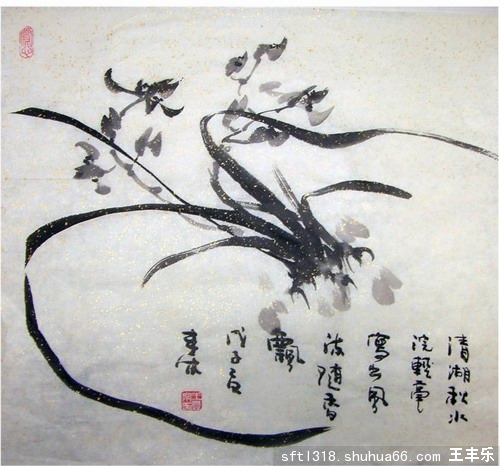 清湖秋水
浣輕毫
寫出風
流隨香
飄
戊子夏
sftl318.shuhua66.com 王丰乐